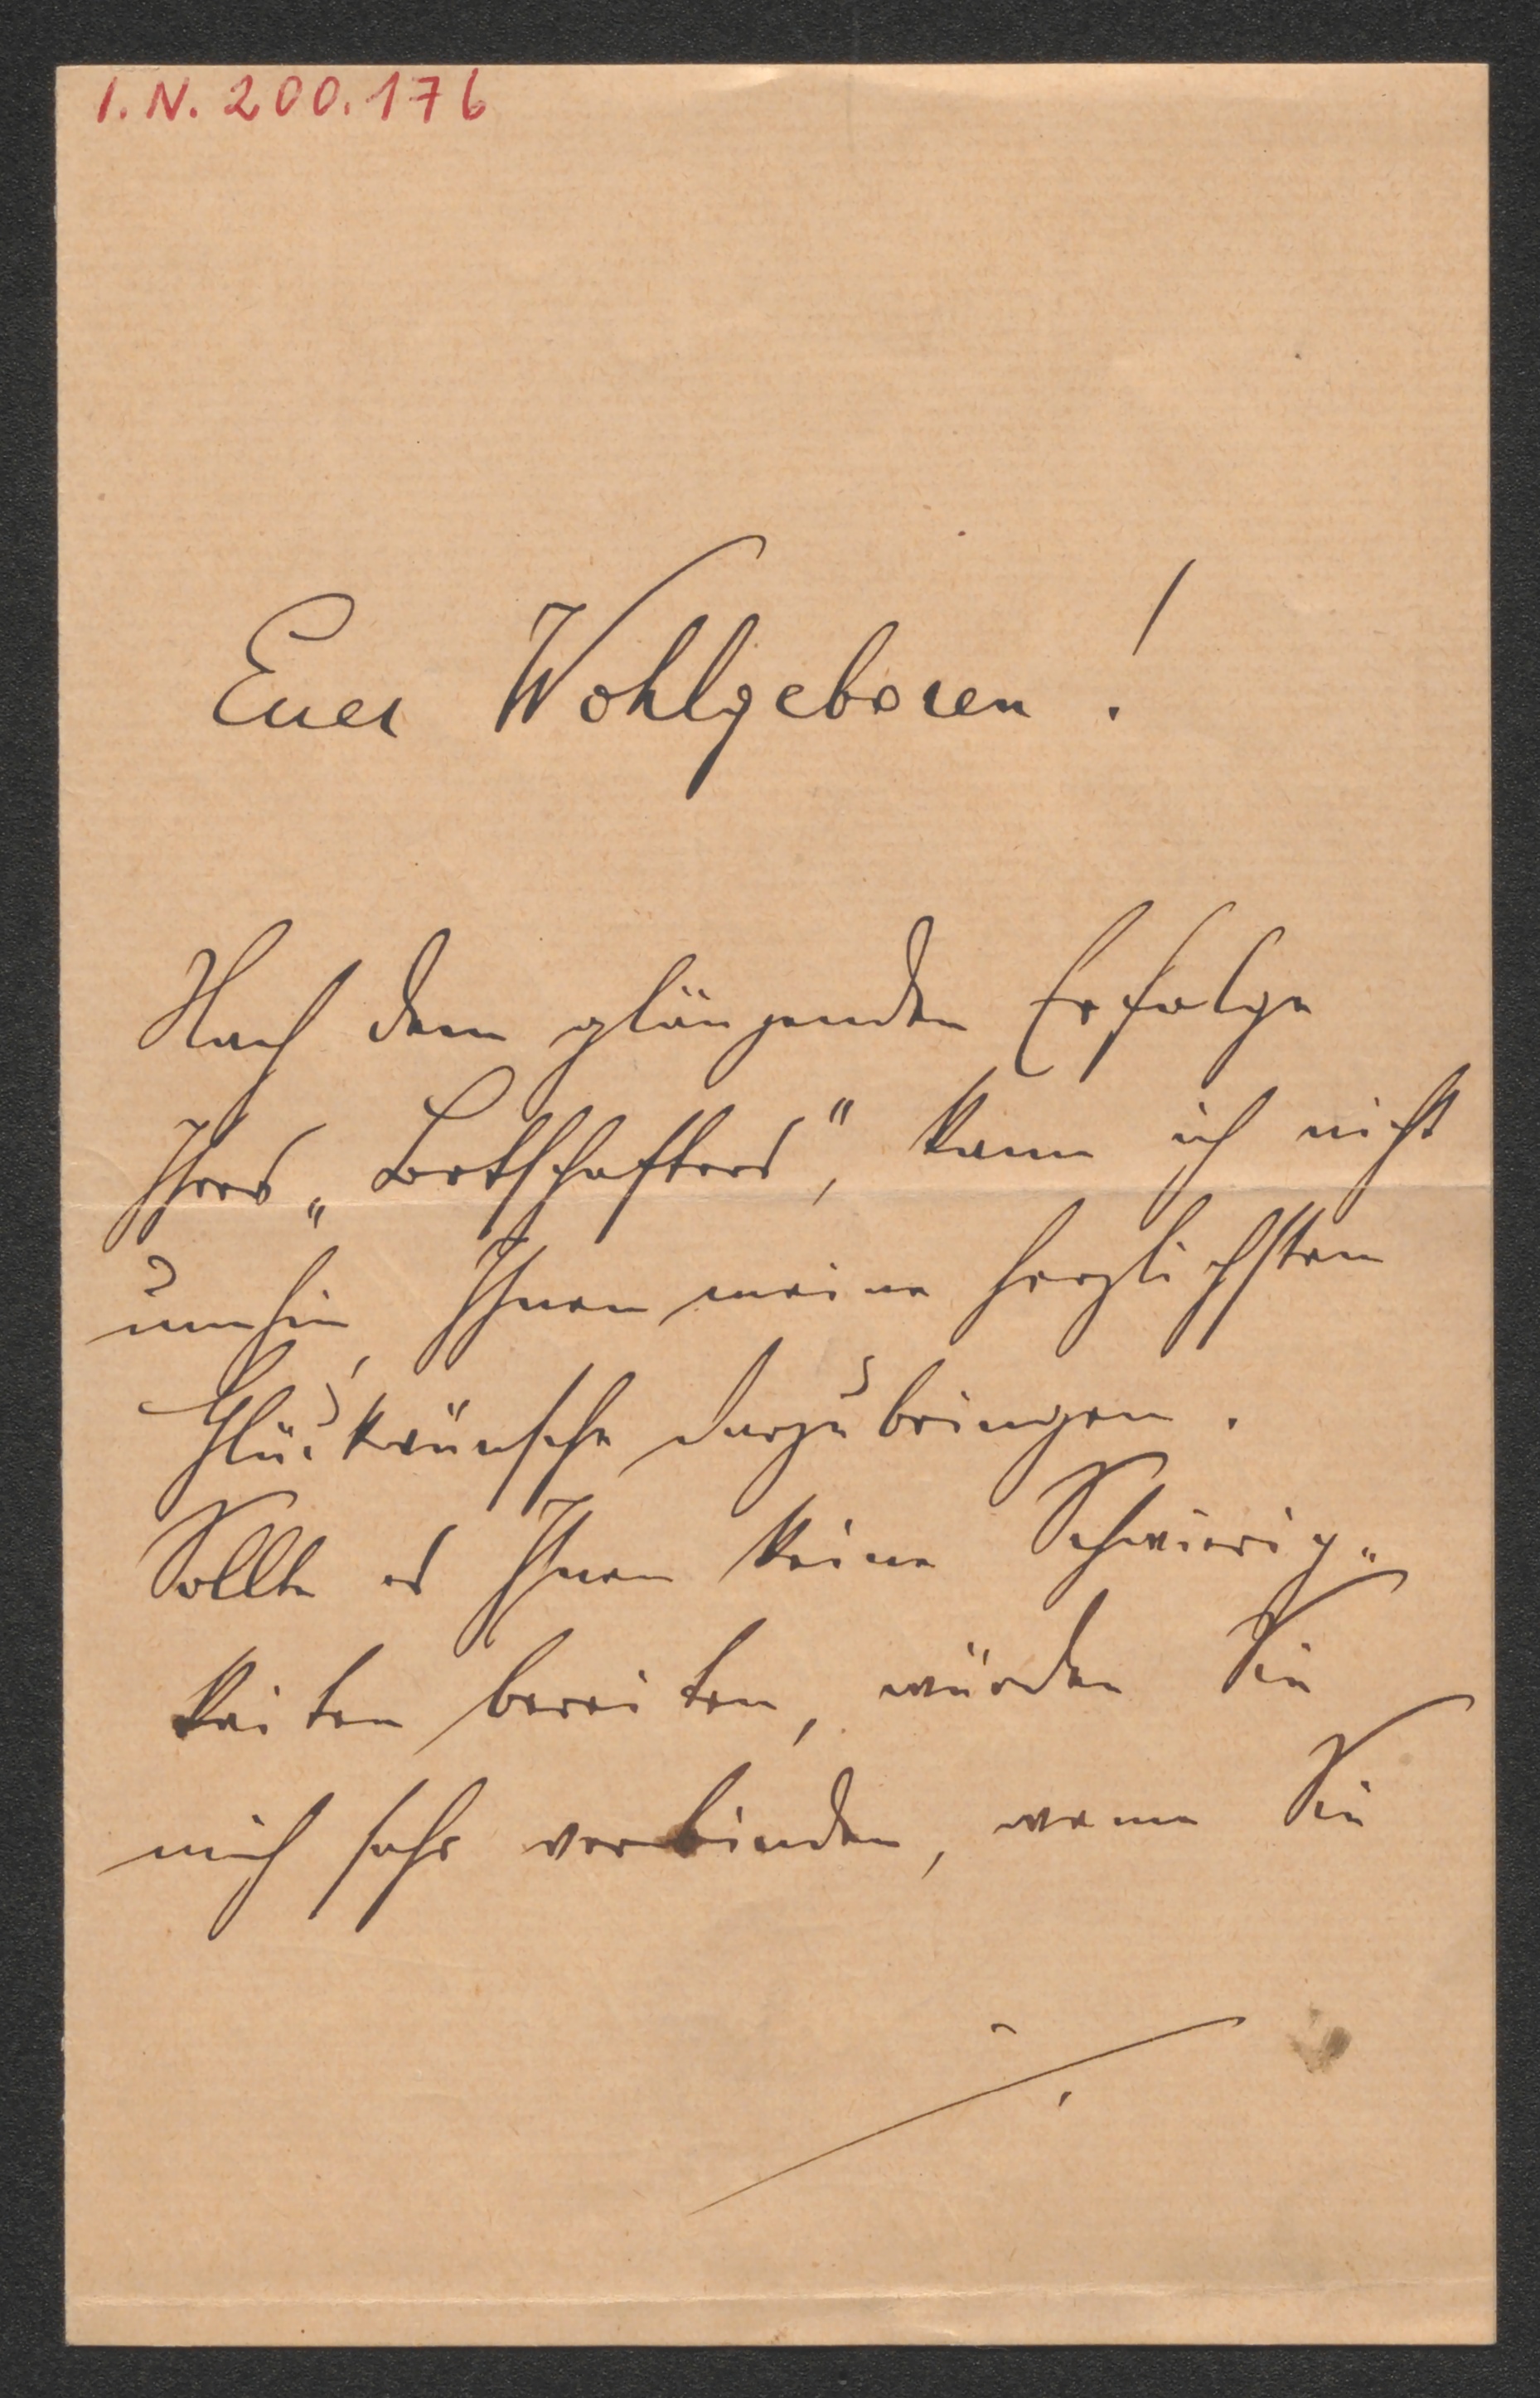 I.N. 200.176
Euer Wohlgeboren !
Nach dem glänzenden Erfolge
Ihres „Botschafters“, kann ich nicht
umhin, Ihnen meine herzlichsten
Glückwünsche darzubringen.
Sollte es Ihnen keine Schwierig„
keiten bereiten, würden Sie
mich sehr verbinden, wenn Sie